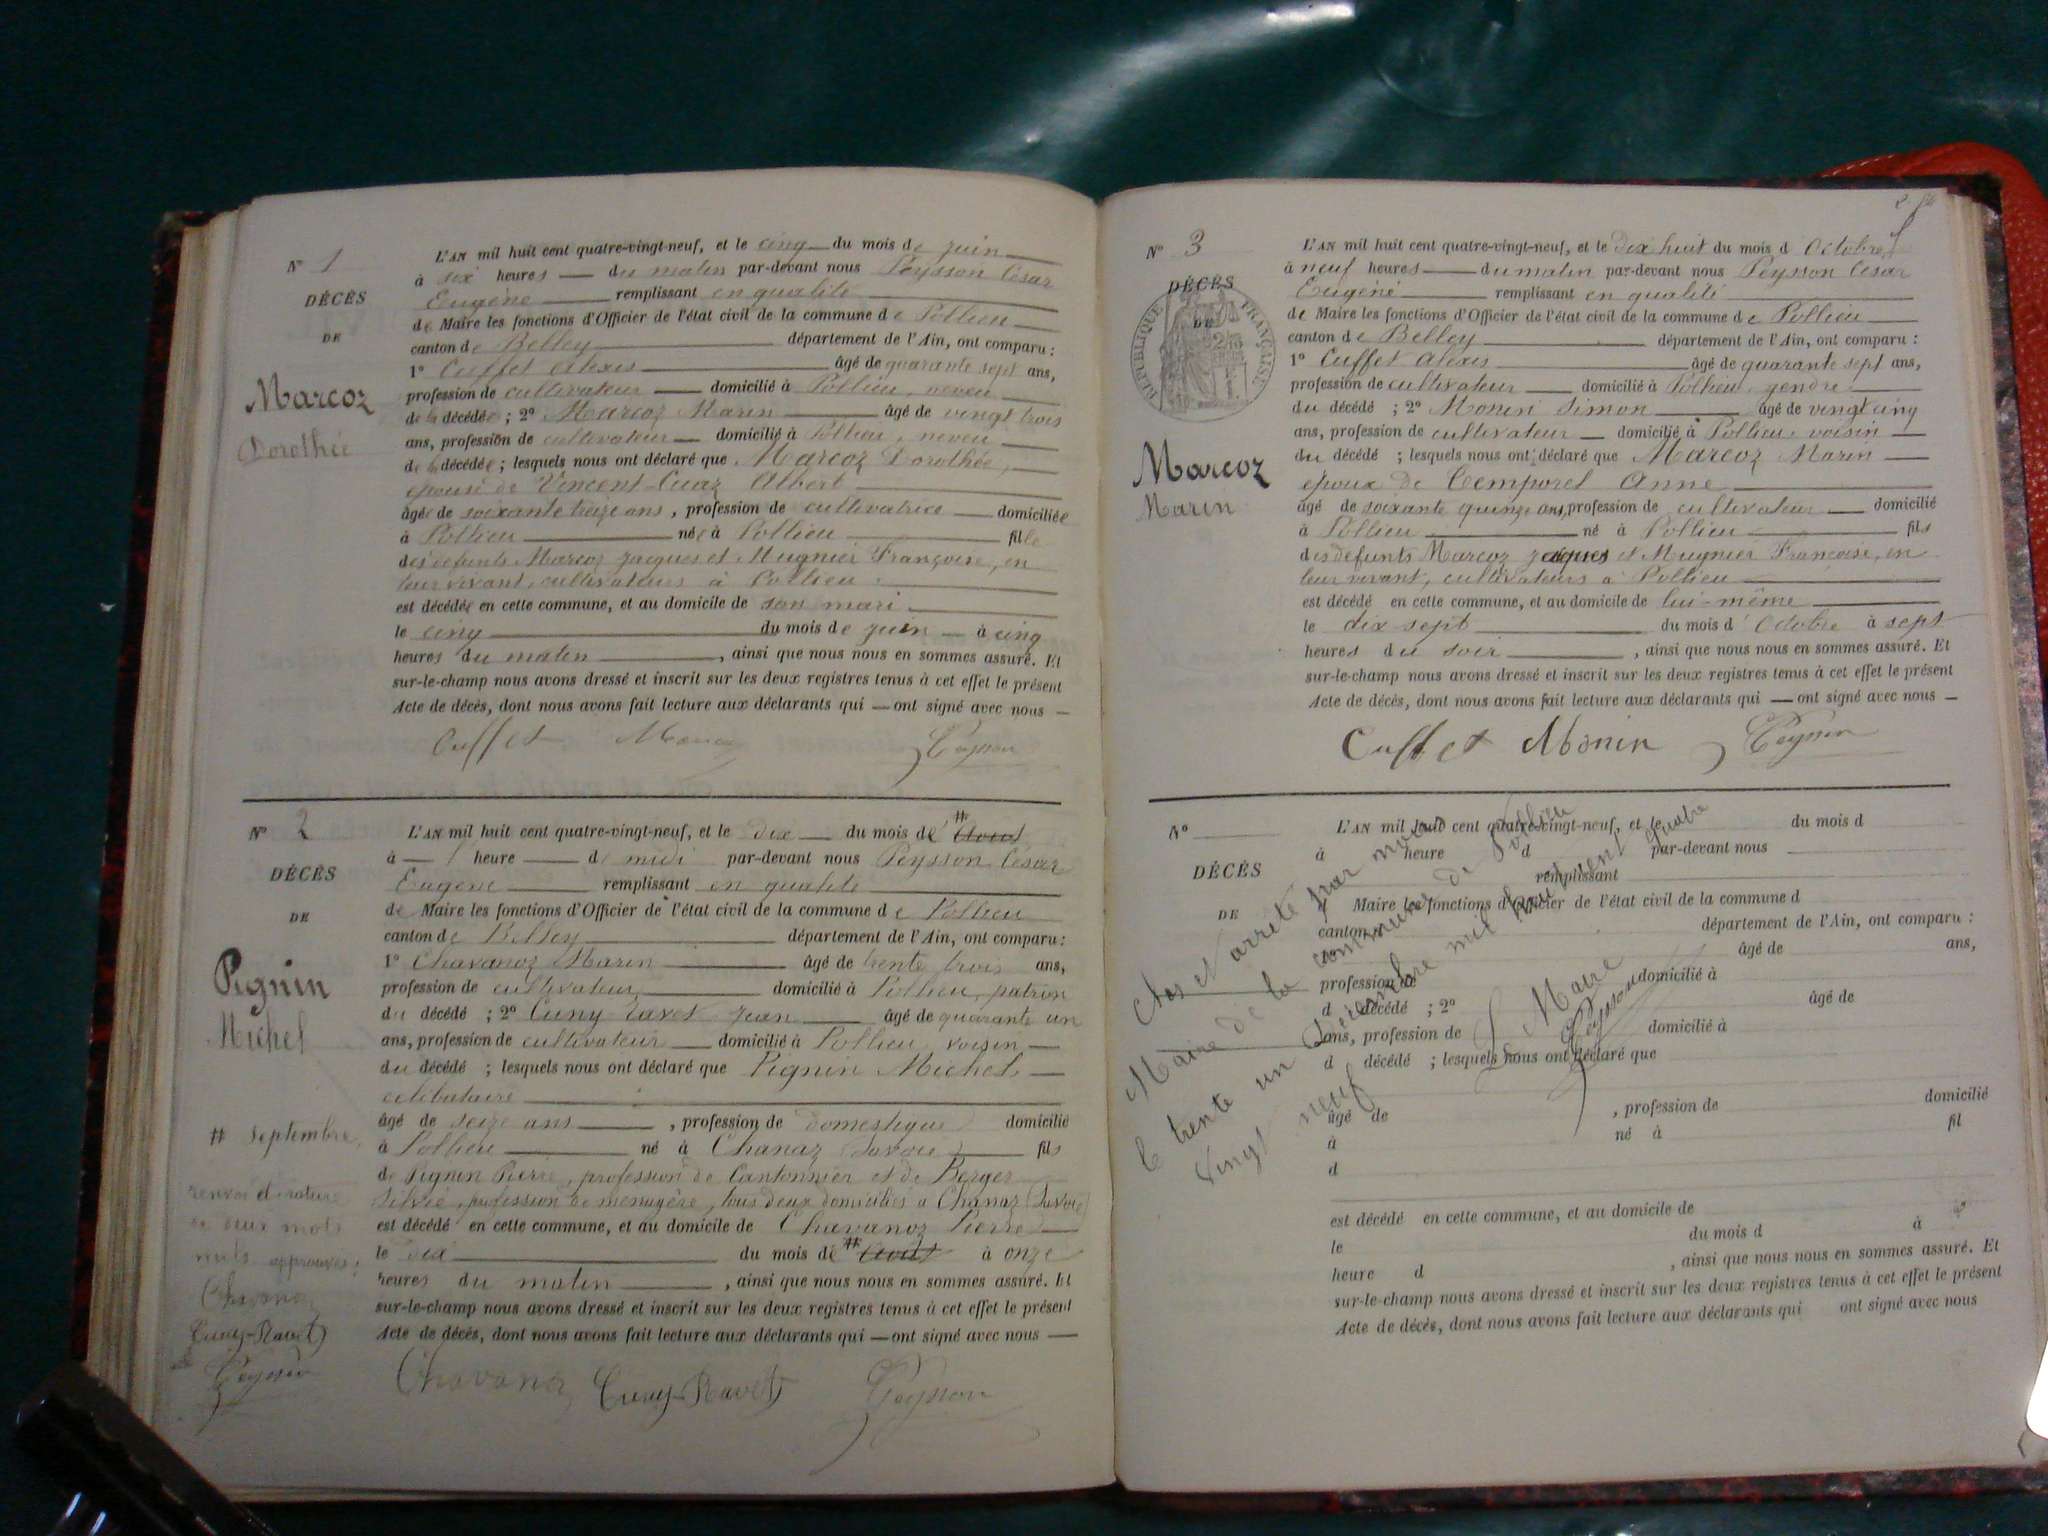 N° 1
DÉCÈS
DE
Marcoz
Dorothée
L'AN mil huit cent quatre-vingt-neuf, et le cinq du mois de juin
à six heures du matin par-devant nous Peysson César
Eugène remplissant en qualité
de Maire les fonctions d'Officier de l'état civil de la commune de Pollieu
canton de Belley département de l'Ain, ont comparu :
1° Cuffet Alexis âgé de quarante sept ans,
profession de cultivateur domicilié à Pollieu, neveu
de la décédée ; 2° Marcoz Marin âgé de vingt trois
ans, profession de cultivateur domicilié à Pollieu, neveu
de la décédée ; lesquels nous ont déclaré que Marcoz Dorothée,
épouse de Vincent-Cuaz Albert
âgée de soixante treize ans, profession de cultivatrice domiciliée
à Pollieu née à Pollieu fille
des défunts Marcoz Jacques et Mugnier Françoise, en
leur vivant, cultivateurs à Pollieu
est décédée en cette commune, et au domicile de son mari
le cinq du mois de juin à cinq
heures du matin, ainsi que nous nous en sommes assuré. Et
sur-le-champ nous avons dressé et inscrit sur les deux registres tenus à cet effet le présent
Acte de décès, dont nous avons fait lecture aux déclarants qui ont signé avec nous
Cuffet Peysson
N° 2
DÉCÈS
DE
Pignin
Michel
L'AN mil huit cent quatre-vingt-neuf, et le dix du mois de # Aout
à heure de midi par-devant nous Peysson César
Eugène remplissant en qualité
de Maire les fonctions d'Officier de l'état civil de la commune de Pollieu
canton de Belley département de l'Ain, ont comparu :
1° Chavanoz Marin âgé de trente trois ans,
profession de cultivateur domicilié à Pollieu, patron
du décédé ; 2° Cuny-Ravet Jean âgé de quarante un
ans, profession de cultivateur domicilié à Pollieu, voisin
du décédé ; lesquels nous ont déclaré que Pignin Michel,
célibataire
âgé de seize ans, profession de domestique domicilié
à Pollieu né à Chanaz (Savoie) fils
de Pignin Pierre, profession de Cantonnier et de Berger
profession de ménagère, tous deux domiciliés à Chanaz (Savoie)
est décédé en cette commune, et au domicile de Chavanoz Pierre
le dix du mois de # Aout à onze
heures du matin, ainsi que nous nous en sommes assuré. Et
sur-le-champ nous avons dressé et inscrit sur les deux registres tenus à cet effet le présent
Acte de décès, dont nous avons fait lecture aux déclarants qui ont signé avec nous
# Septembre,
renvoi et rature
de deux mots
nuls approuvés,
Chavanoz
Cuny-Ravet
Peysson
Chavanoz Cuny-Ravet Peysson
N° 3
DÉCÈS
DE
RÉPUBLIQUE FRANÇAISE
Marcoz
Marin
L'AN mil huit cent quatre-vingt-neuf, et le dix huit du mois d'Octobre
à neuf heures du matin par-devant nous Peysson César
Eugène remplissant en qualité
de Maire les fonctions d'Officier de l'état civil de la commune de Pollieu
canton de Belley département de l'Ain, ont comparu :
1° Cuffet Alexis âgé de quarante sept ans,
profession de cultivateur domicilié à Pollieu, gendre
du décédé ; 2° Monin Simon âgé de vingt cinq
ans, profession de cultivateur domicilié à Pollieu, voisin
du décédé ; lesquels nous ont déclaré que Marcoz Marin
époux de Temporel Anne
âgé de soixante quinze ans, profession de cultivateur domicilié
à Pollieu né à Pollieu fils
des défunts Marcoz Jacques et Mugnier Françoise, en
leur vivant, cultivateurs à Pollieu
est décédé en cette commune, et au domicile de lui-même
le dix sept du mois d'Octobre à sept
heures du soir, ainsi que nous nous en sommes assuré. Et
sur-le-champ nous avons dressé et inscrit sur les deux registres tenus à cet effet le présent
Acte de décès, dont nous avons fait lecture aux déclarants qui ont signé avec nous
Cuffet Monin Peysson
N°
DÉCÈS
DE
L'AN mil huit cent quatre-vingt-neuf, et le du mois d
à heure d par-devant nous
remplissant
Maire les fonctions d'Officier de l'état civil de la commune d
canton département de l'Ain, ont comparu :
âgé de ans,
profession de domicilié à
d décédé ; 2° âgé de
ans, profession de domicilié à
d décédé ; lesquels nous ont déclaré que
âgé de , profession de domicilié
à né à fil
d
est décédé en cette commune, et au domicile de
le du mois d à
heure d , ainsi que nous nous en sommes assuré. Et
sur-le-champ nous avons dressé et inscrit sur les deux registres tenus à cet effet le présent
Acte de décès, dont nous avons fait lecture aux déclarants qui ont signé avec nous
Clos et arrêté par nous
Maire de la commune de Pollieu
le trente un Décembre mil huit cent quatre
vingt neuf
Le Maire
Peysson